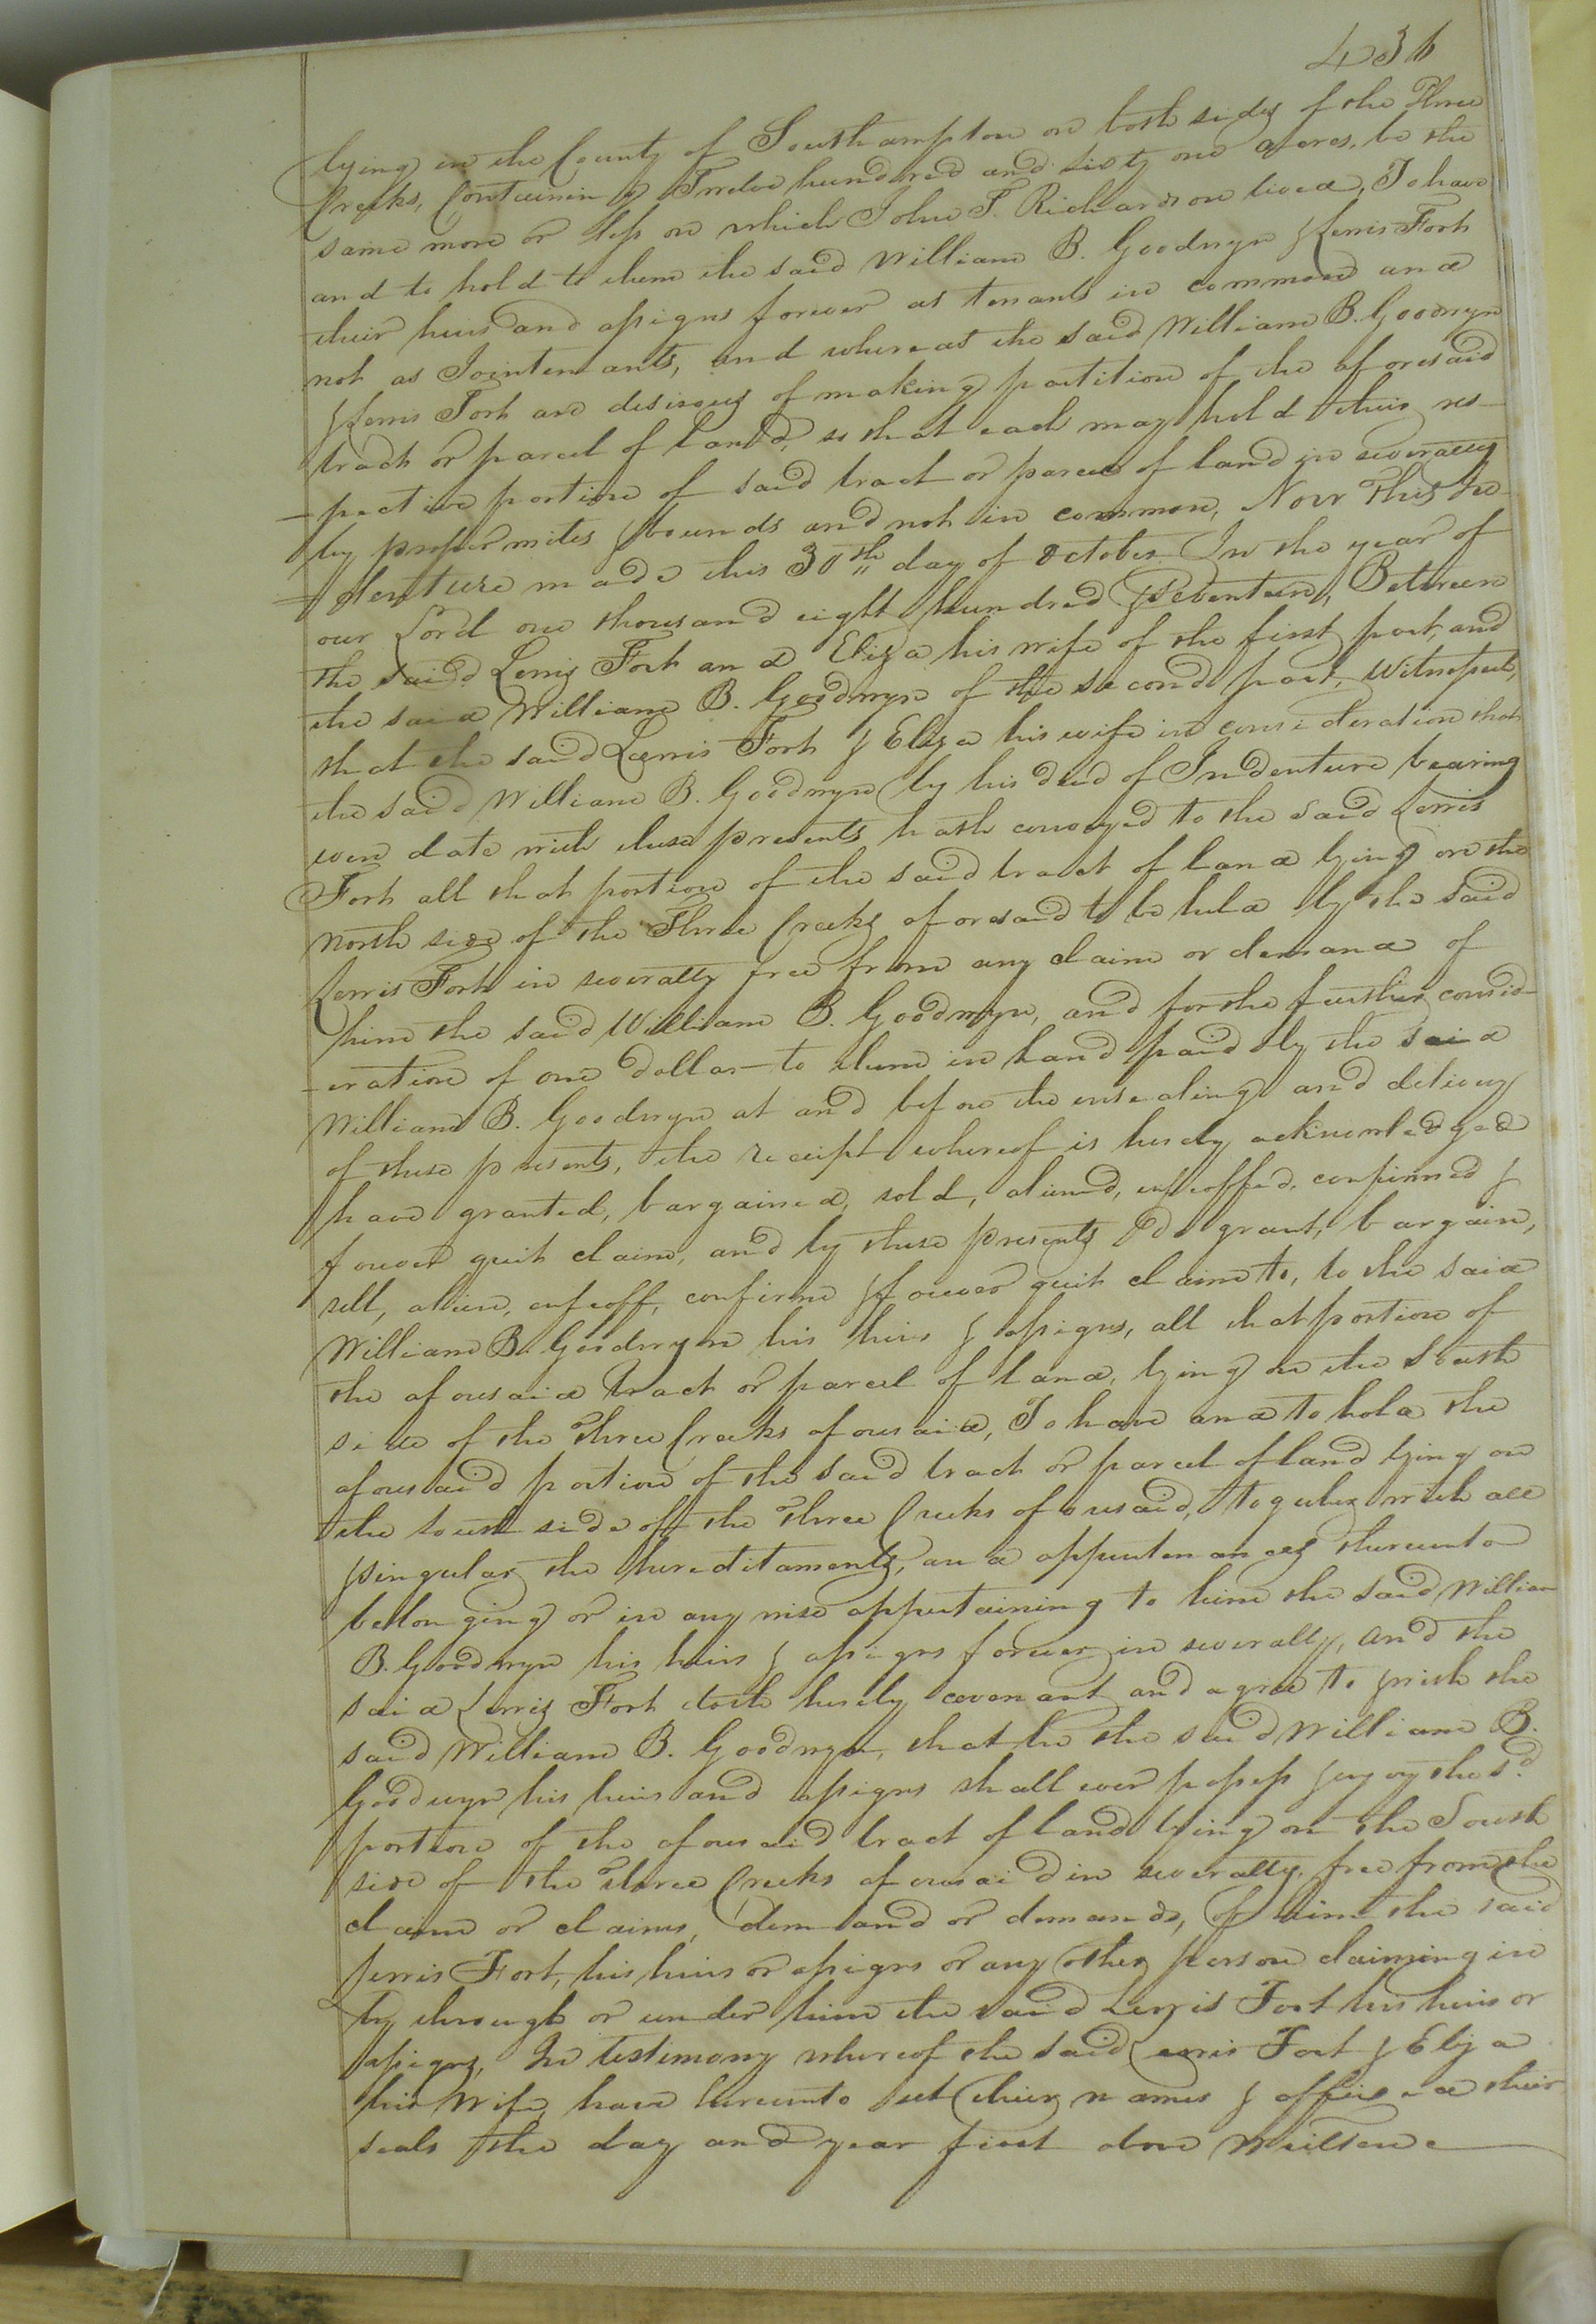 436
lying in the County of Southampton on both sides of the Three
Creeks, Containing Twelve hundred and sixty one acres, be the
same more or less on which John T. Richardson lived, To have
and to hold to them the said William B. Goodwyn & Lewis Fort
their heirs and assigns forever as tenants in common and
not as Jointenants, and whereas the said William B. Goodwyn
& Lewis Fort are desirous of making partition of the aforesaid
tract or parcel of land, so that each may hold their res-
-pective portion of said tract or parcel of land in severalty
by proper mites & bounds and not in common, Now This In-
-denture made this 30th day of October In the year of
our Lord one thousand eight hundred & Seventeen, Between
the said Lewis Fort and Eliza his wife of the first part, and
the said William B. Goodwyn of the second part, Witnesseth,
that the said Lewis Fort & Eliza his wife in consideration that
the said William B. Goodwyn by his deed of Indenture bearing
even date with these presents hath conveyed to the said Lewis
Fort all that portion of the said tract of land lying on the
north side of the Three Creeks aforesaid to be held by the said
Lewis Fort in severalty free from any claim or demand of
him the said William B. Goodwyn, and for the further consid-
-eration of one dollar to them in hand paid by the said
William B. Goodwyn at and before the ensealing and delivery
of these presents, the receipt whereof is hereby acknowledged
have granted, bargained, sold, aliened, enfeoffed, confirmed &
forever quit claim, and by these presents do grant, bargain,
sell, aliene, enfeoff, confirm & forever quit claim to, to the said
William B. Goodwyn his heirs & assigns, all that portion of
the aforesaid tract or parcel of land, lying on the South
side of the Three Creeks aforesaid, To have and to hold the
aforesaid portion of the said tract or parcel of land lying on
the south side of the Three Creeks aforesaid, together with all
& singular the hereditaments, and appurtenances thereunto
bellonging or in any wise appertaining to him the said William
B. Goodwyn his heirs & assigns forever in severalty, and the
said Lewis Fort doth hereby covenant and agree to & with the
said William B. Goodwyn, that he the said William B.
Goodwyn his heirs and assigns shall ever possess & enjoy the sd.
portion of the aforesaid tract of land lying on the South
side of the Three Creeks aforesaid in severalty, free from the
claim or claims, demand or demands, of him the said
Lewis Fort, his heirs or assigns or any other person claiming in
by through or under him the said Lewis Fort his heirs or
assigns, In testimony whereof the said Lewis Fort & Eliza
his Wife, have hereunto set their names & affixed their
seals the day and year first above Written